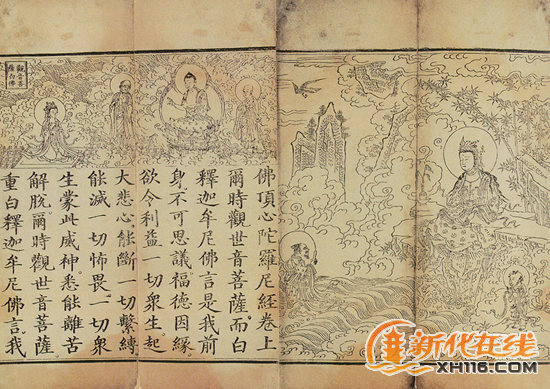 佛頂心陀羅尼經卷上
爾時觀世音菩薩而白
釋迦牟尼佛言是我前
身不可思議福德因緣
欲令利益一切衆生起
大悲心能斷一切繫縛
能滅一切怖畏一切衆
生蒙此威神悉能離苦
解脫爾時觀世音菩薩
重白釋迦牟尼佛言我
觀音菩
新化在线
XH116.COM